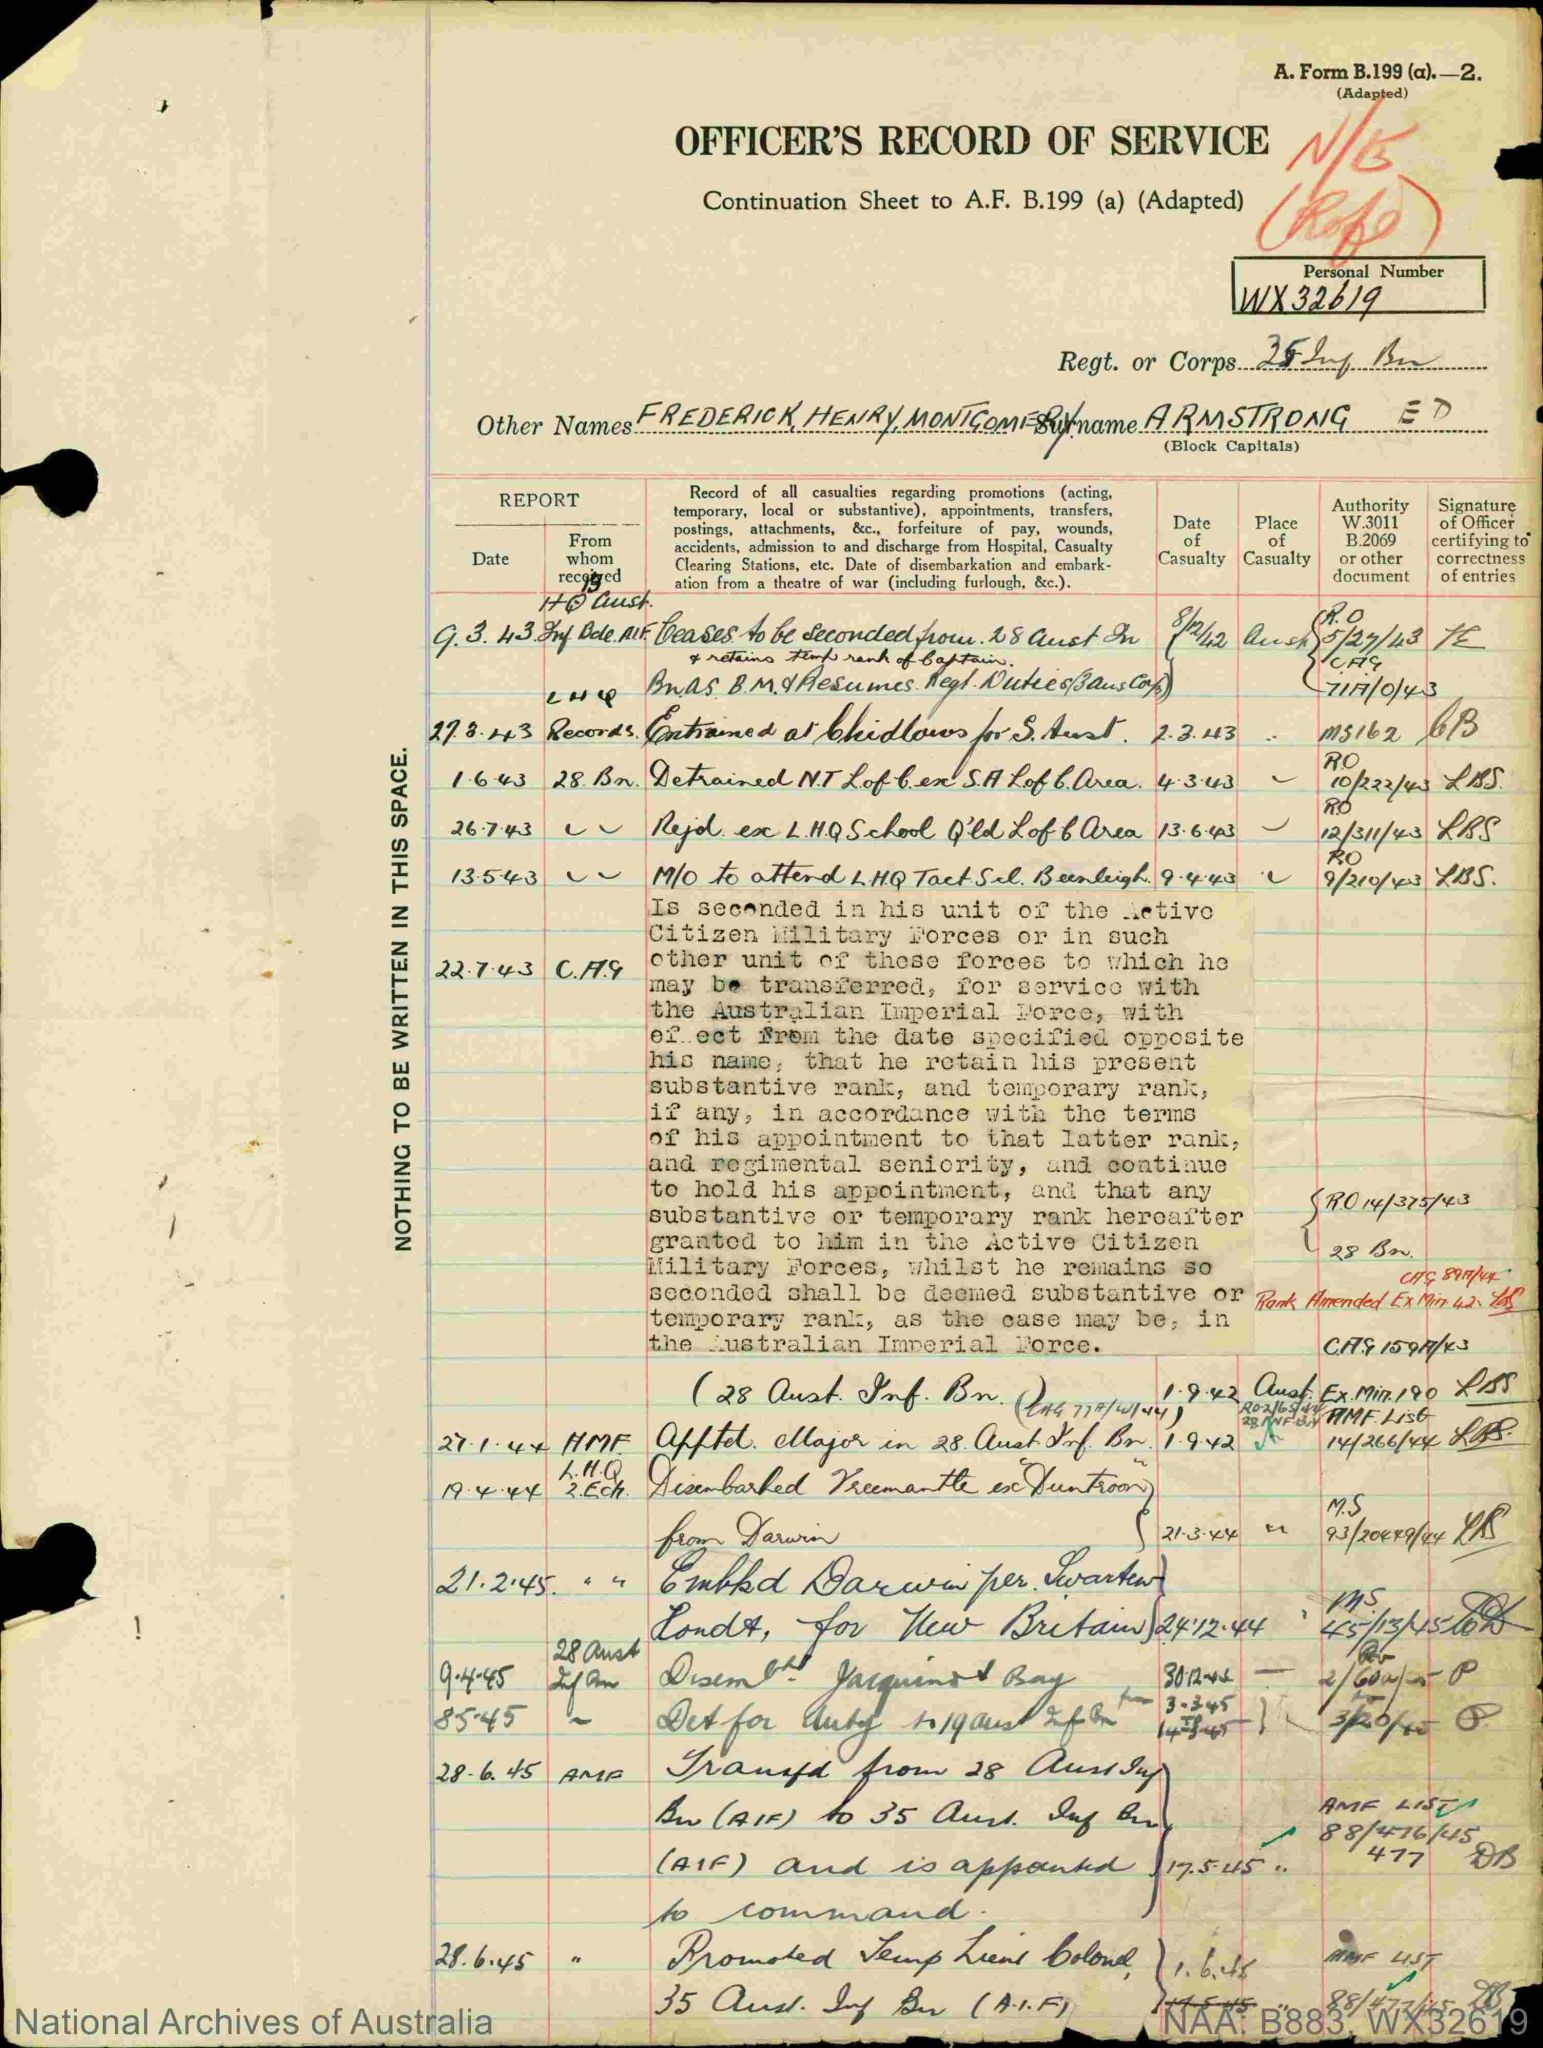 A. Form B.199 (a).—2.
(Adapted)
OFFICER'S RECORD OF SERVICE
N/E
Continuation Sheet to A.F. B.199 (a) (Adapted)
Personal Number
WX32619
Regt. or Corps 35 Inf Bn
Other Names FREDERICK, HENRY, MONTGOMERY Surname ARMSTRONG ED
(Block Capitals)
REPORT
Date
From whom received
Record of all casualties regarding promotions (acting,
temporary, local or substantive), appointments, transfers,
postings, attachments, &c., forfeiture of pay, wounds,
accidents, admission to and discharge from Hospital, Casualty
Clearing Stations, etc. Date of disembarkation and embark-
ation from a theatre of war (including furlough, &c.).
Date of Casualty
Place of Casualty
Authority W.3011 B.2069 or other document
Signature of Officer certifying to correctness of entries
NOTHING TO BE WRITTEN IN THIS SPACE.
HQ 13 Aust.
9.3.43 Inf Bde. AIF. Ceases to be seconded from 28 Aust In 8/12/42 Aust R.O 5/27/43
& retains temp rank of Captain.
Bn as B.M. & Resumes Regt. Duties (3 Aus Corps) CAG 71A/0/43
LHQ
27.3.43 Records. Entrained at Chidlows for S. Aust. 2.3.43 " MS162 CB
1.6.43 28. Bn. Detrained N.T L of C. ex S.A L of C. Area. 4.3.43 " RO 10/222/43 LBS.
26.7.43 " " Rejd. ex L.H.Q School Q'ld L of C Area 13.6.43 " RO 12/311/43 LBS
13.5.43 " " M/O to attend L.H.Q Tact Scl. Beenleigh. 9.4.43 " RO 9/210/43 LBS.
Is seconded in his unit of the Active
Citizen Military Forces or in such
22.7.43 C.A.G other unit of these forces to which he
may be transferred, for service with
the Australian Imperial Force, with
ef ect from the date specified opposite
his name, that he retain his present
substantive rank, and temporary rank,
if any, in accordance with the terms
of his appointment to that latter rank,
and regimental seniority, and continue
to hold his appointment, and that any
substantive or temporary rank hereafter R.O 14/375/43
granted to him in the Active Citizen 28 Bn.
Military Forces, whilst he remains so CAG 89A/44
seconded shall be deemed substantive or Rank Amended Ex Min. 42. LBS
temporary rank, as the case may be, in
the Australian Imperial Force. C.A.G 159A/43
(28 Aust. Inf. Bn. (CAG 77A/W/44) 1.9.42 Aust. Ex. Min. 190 LBS
RO 2/65/44 28 INF BN AMF List
27.1.44 AMF Apptd. Major in 28 Aust. Inf. Bn. 1.9.42 14/266/44 LBS.
L.H.Q
19.4.44 2. Ech. Disembarked Freemantle ex "Duntroon"
from Darwin 21.3.44 " M.S 93/20449/44 LBS
21.2.45. " " Embkd Darwin per. Swarten
Hondt, for New Britain 24.12.44 " MS 45/13/45
28 Aust
9.4.45 Inf Bn Disembkd. Jacquinot Bay 30.12.44 — P
8.5.45 " Det for duty to 19 Aust Inf Bn from 3.3.45 to 14.3.45 P
28.6.45 AMF Transfd from 28 Aust Inf
Bn (AIF) to 35 Aust. Inf Bn AMF LIST
88/476/45
(AIF) and is appointed 17.5.45 " 477 DB
to command.
28.6.45 " Promoted Temp Lieut Colonel, 1.6.45 AMF LIST
35 Aust. Inf Bn (A.I.F) 17.5.45 " 88/477/45. DB
National Archives of Australia
NAA: B883, WX32619